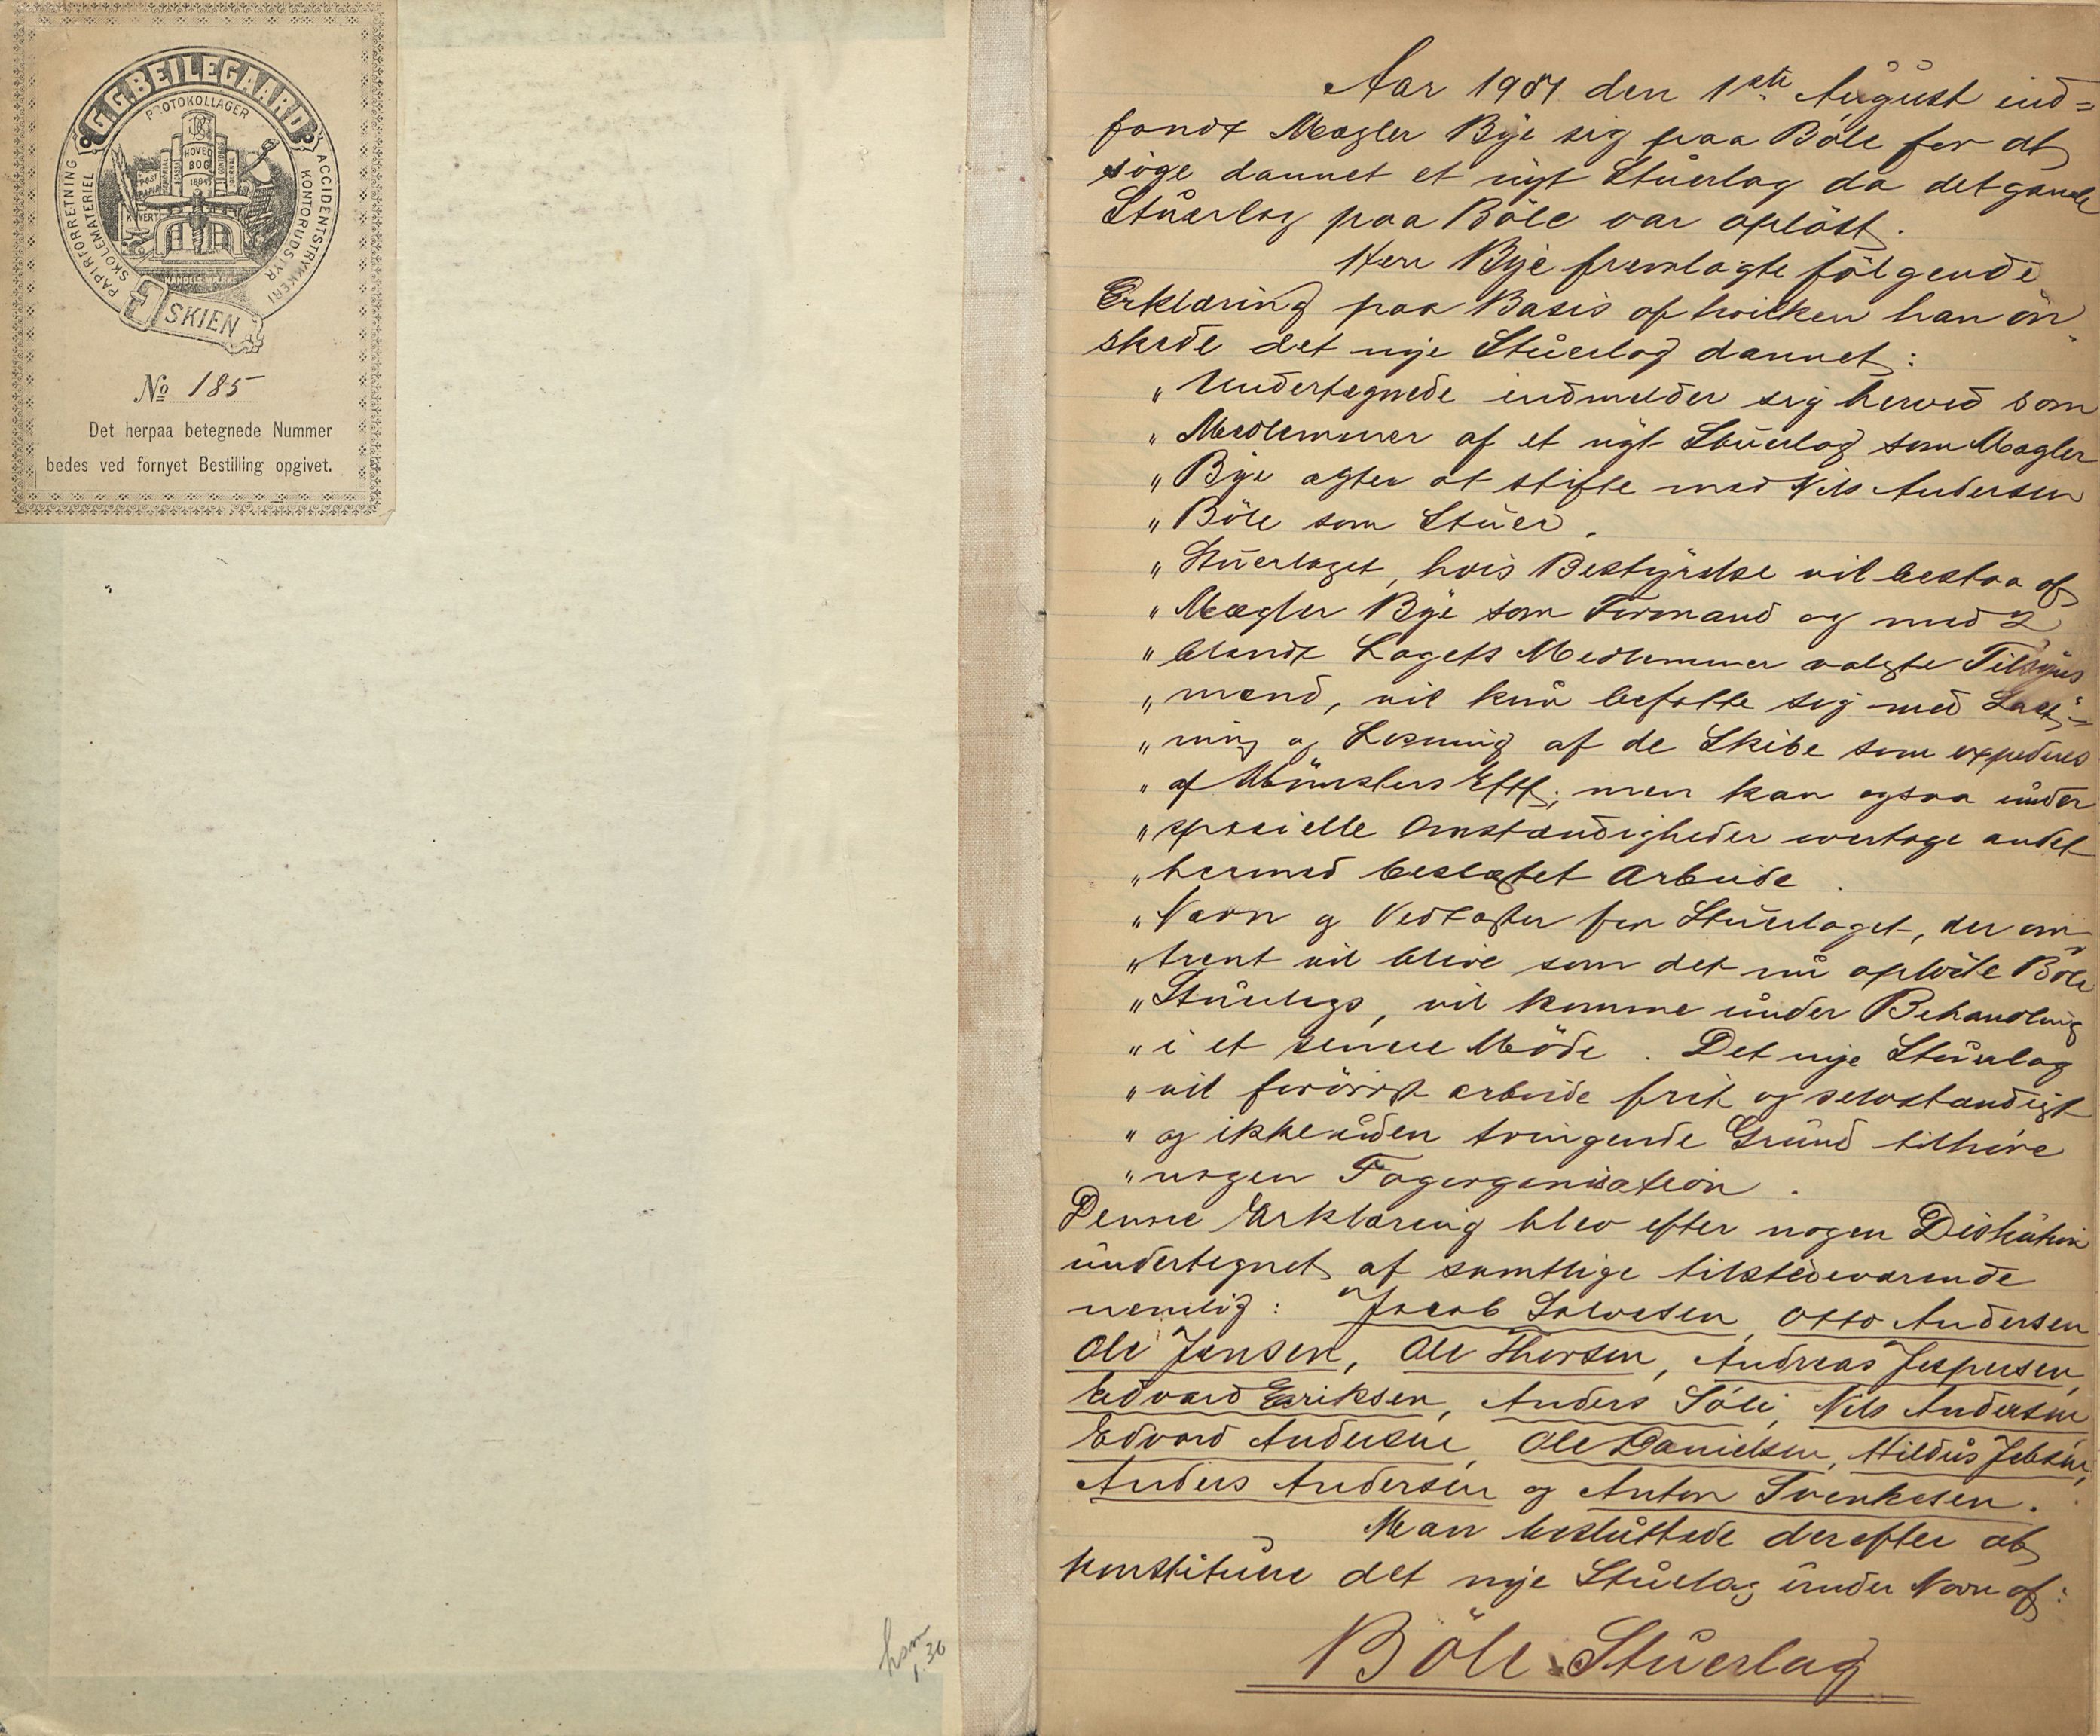 G.G. BEILEGAARD
PROTOKOLLAGER
PAPIRFORRETNING
SKOLEMATERIEL
ACCIDENTSTRYKKERI
KONTORUDSTYR
HOVED
BOG
HANDELSMÆRKE
SKIEN
No 185
Det herpaa betegnede Nummer
bedes ved fornyet Bestilling opgivet.
hsm
1.30
Aar 1901 den 1ste August ind=
fandt Mægler Bye sig paa Böle for at
søge dannet et nyt Stuerlag da det gamle
Stuerlag paa Böle var opløst.
Herr Bye fremlagte følgende
Erklæring paa Basis af hvilken han øn-
skede det nye Stuerlag dannet:
„ Undertegnede indmelder sig herved som
„ Medlemmer af et nyt Stuerlag som Mægler
„ Bye agter at stifte med Nils Andersen
„ Böle som Stuer.
„ Stuerlaget, hvis Bestyrelse vil bestaa af
„ Mægler Bye som Formand og med 2
„ blandt Lagets Medlemmer valgte Tilsyns
„ mænd, vil kun befatte sig med Last-
„ ning og Losning af de Skibe som expederes
„ af Münsters Eftf.; men kan ogsaa under
„ specielle Omstændigheder overtage andet
„ hermed beslægtet Arbeide.
„ Navn og Vedtægter for Stuerlaget, der om-
„ trent vil blive som det nu opløste Böle
„ Stuerlags, vil komme under Behandling
„ i et senere Møde. Det nye Stuerlag
„ vil forøvrigt arbeide frit og selvstændigt
„ og ikke uden tvingende Grund tilhøre
„ nogen Fagorganisation.
Denne Erklæring blev efter nogen Diskusion
undertegnet af samtlige tilstedeværende
nemlig: Jacob Salvesen, Otto Andersen
Ole Jensen, Ole Thorsen, Andreas Jespersen,
Edvard Eriksen, Anders Sóli, Nils Andersen
Edvard Andersen, Ole Danielsen, Hildus Jebsen,
Anders Andersen og Anton Svenkesen.
Man besluttede derefter at
konstituere det nye Stuerlag under Navn af:
Böle Stuerlag